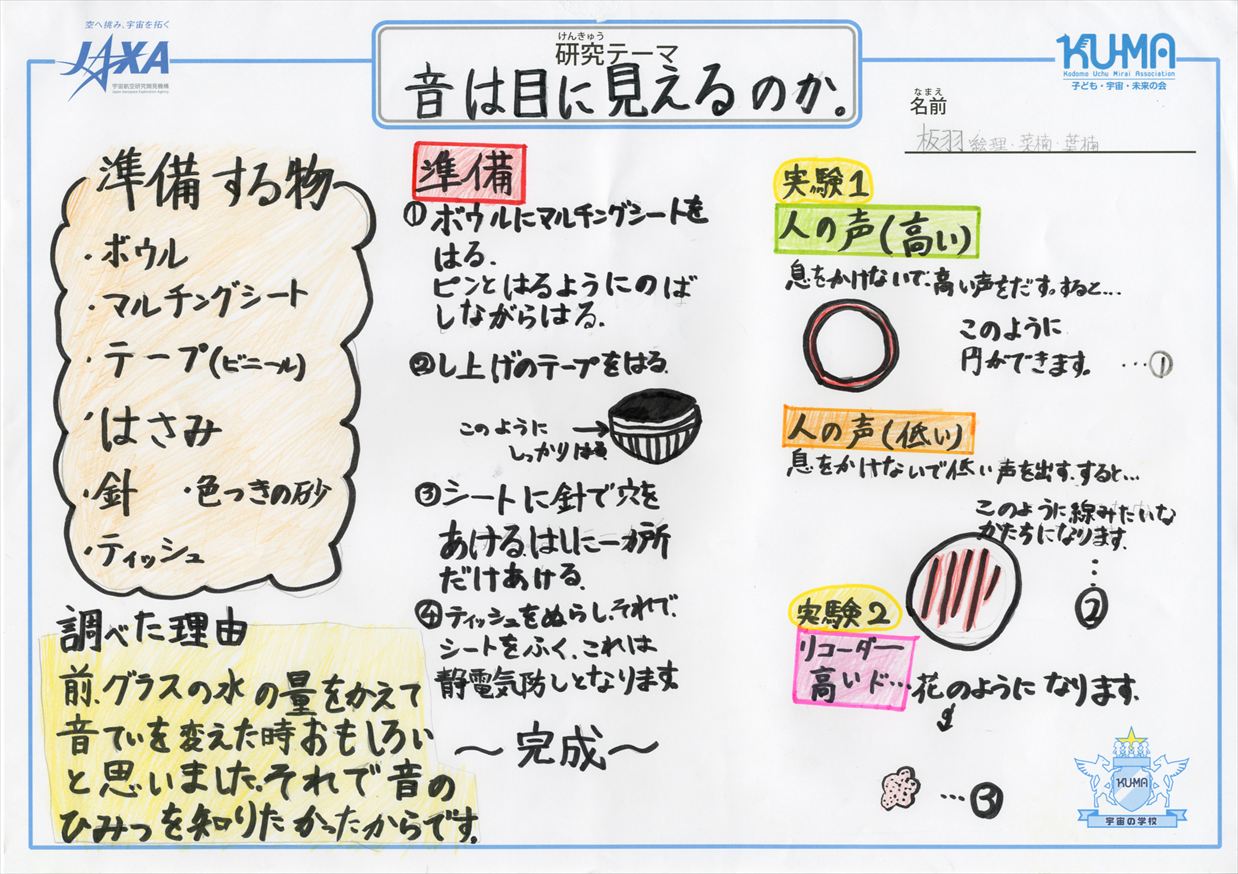 空へ挑み、宇宙を拓く
JAXA
宇宙航空研究開発機構
Japan Aerospace Exploration Agency
けんきゅう
研究テーマ
音は目に見えるのか。
KU-MA
Kodomo Uchu Mirai Association
子ども・宇宙・未来の会
なまえ
名前
板羽 絵理・菜楠・葉楠
準備する物
・ボウル
・マルチングシート
・テープ(ビニール)
・はさみ
・針 ・色つきの砂
・ティッシュ
調べた理由
前、グラスの水の量をかえて
音ていを変えた時おもしろい
と思いました。それで音の
ひみつを知りたかったからです。
準備
①ボウルにマルチングシートを
はる。
ピンとはるようにのば
しながらはる。
②し上げのテープをはる。
このように
しっかりはる
③シートに針で穴を
あける。はしに一カ所
だけあける。
④ティッシュをぬらし、それで、
シートをふく。これは
静電気防しとなります。
～完成～
実験1
人の声(高い)
息をかけないで、高い声をだす。すると…
このように
円ができます。 …①
人の声(低い)
息をかけないで低い声を出す。すると…
このように線みたいな
かたちになります。
…②
実験2
リコーダー
高いド…花のようになります。
…③
KU-MA
宇宙の学校